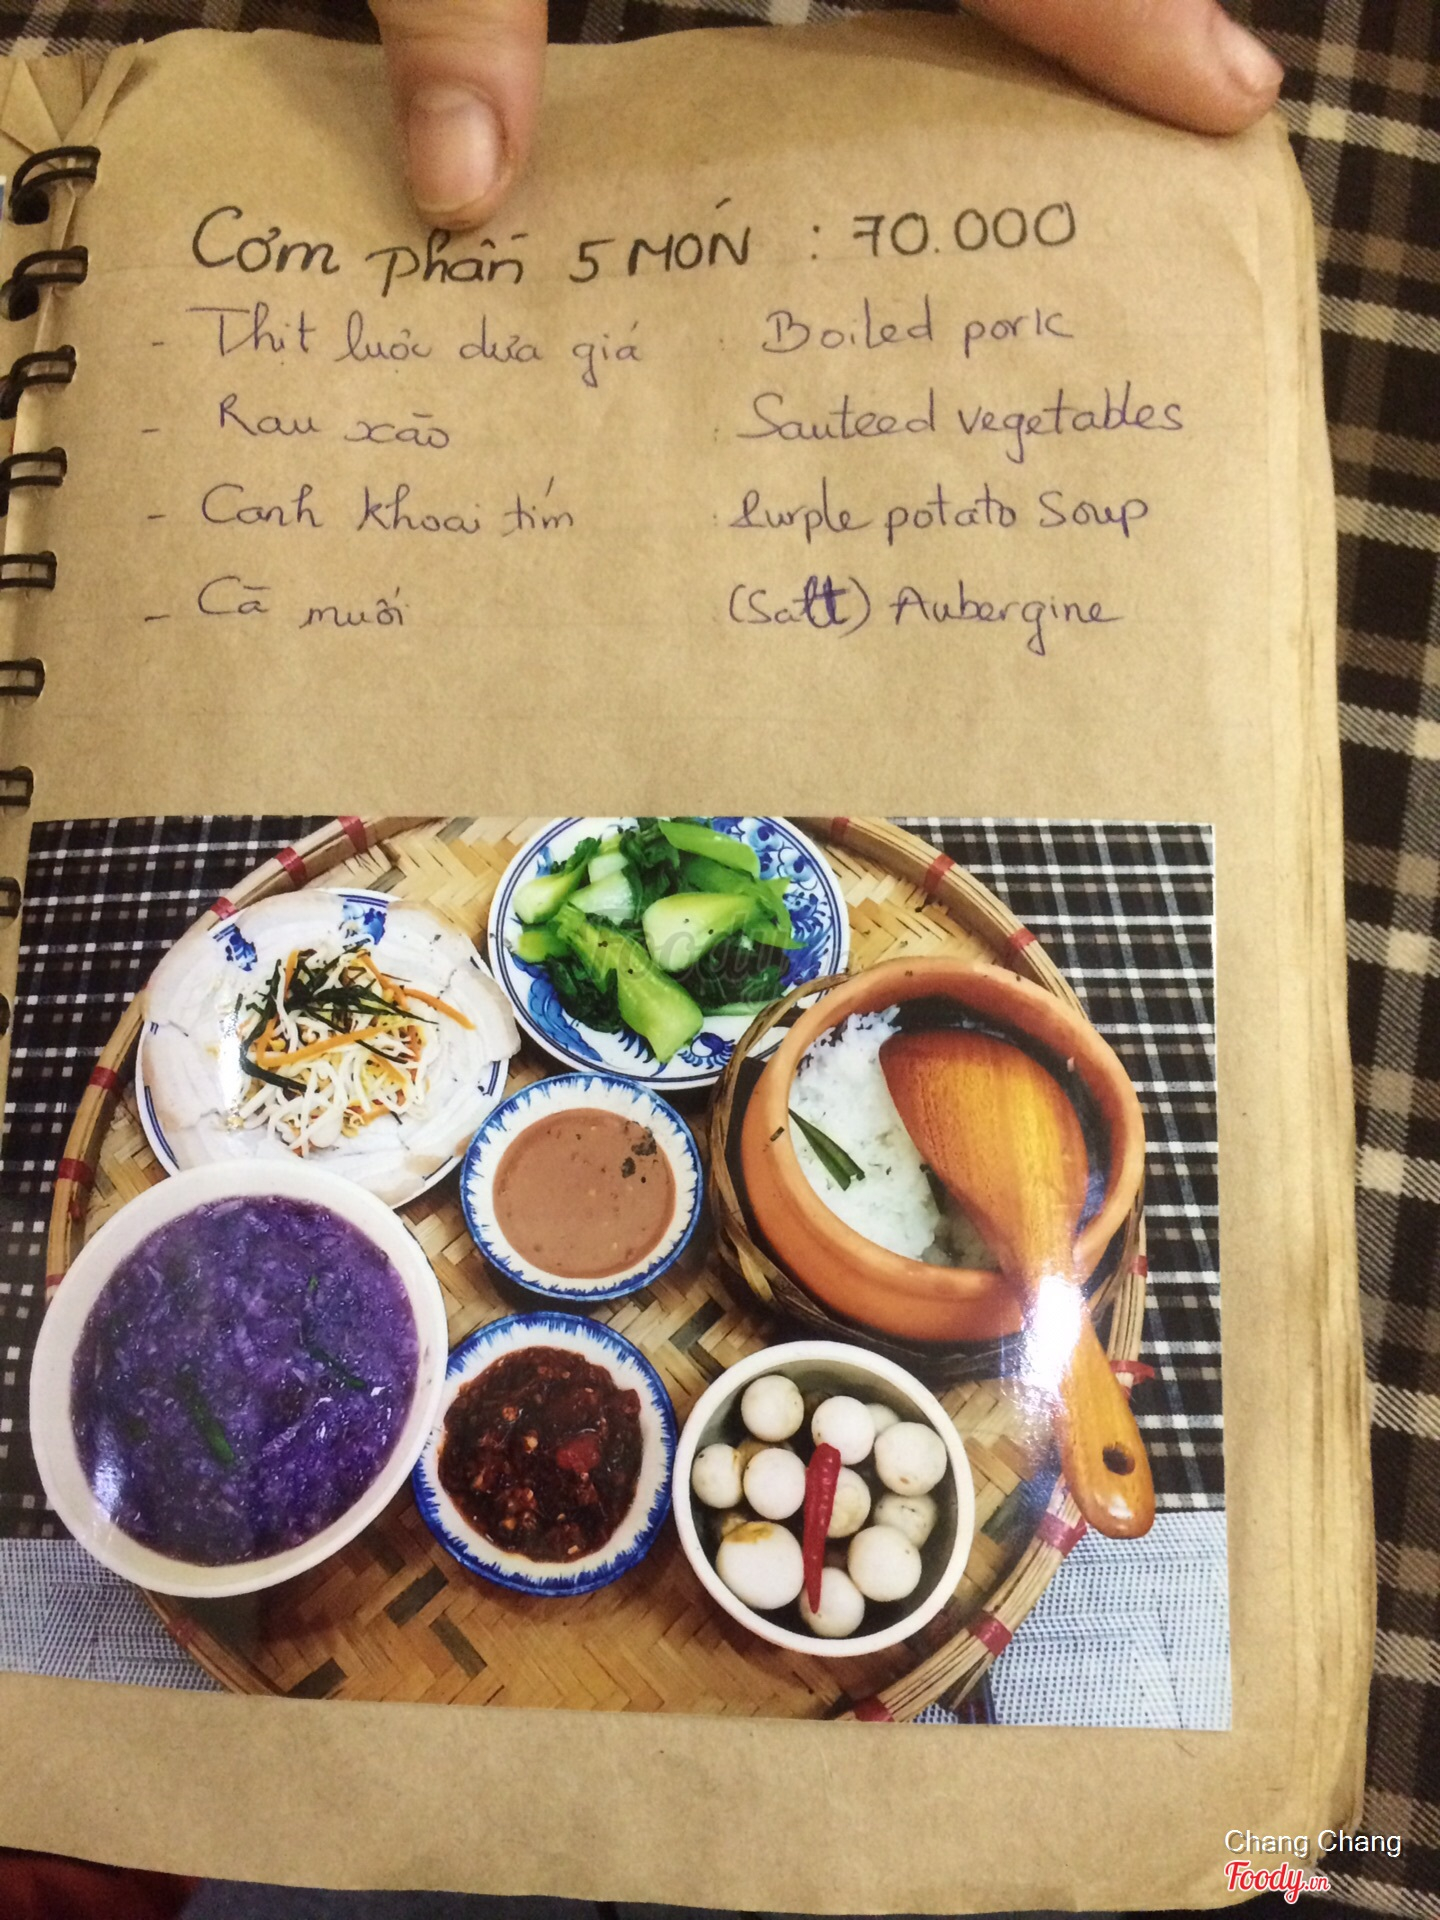 Cơm phần 5 MÓN : 70.000
- Thịt luộc dưa giá : Boiled pork
- Rau xào : Sauteed vegetables
- Canh khoai tím : Purple potato Soup
- Cà muối (Salt) Aubergine
foody
Chang Chang
Foody.vn